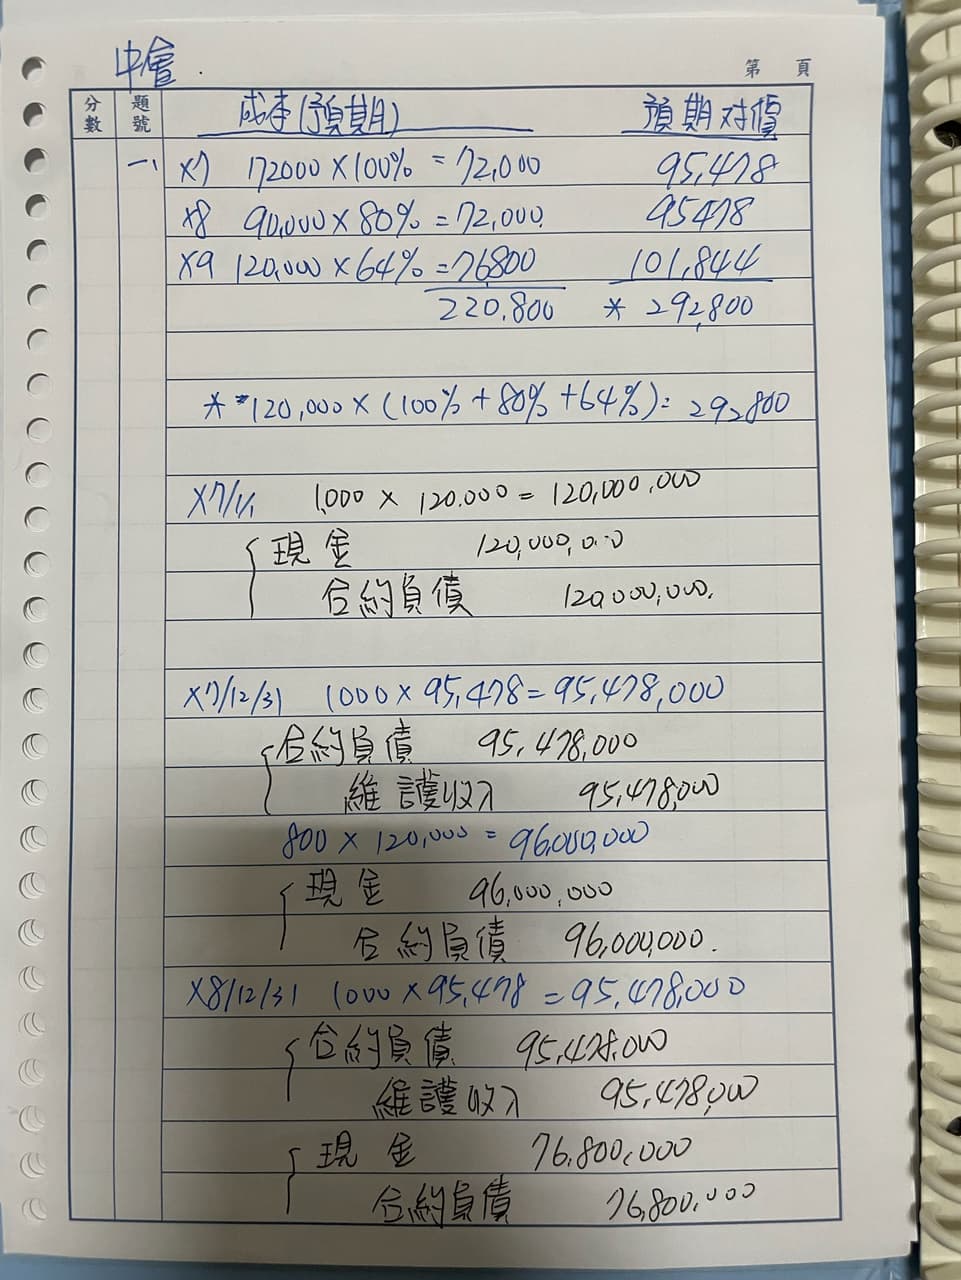 中會
第 頁
分數 題號 成本(預期) 預期对價
一、 X7 172000 × 100% = 72,000 95,478
X8 90,000 × 80% = 72,000 95478
X9 120,000 × 64% = 76800 101,844
220,800 * 292,800
* 120,000 × (100% + 80% + 64%) = 292800
X7/1/1 1,000 × 120.000 = 120,000,000
現金 120,000,000
合約負債 120,000,000.
X7/12/31 1000 × 95,478 = 95,478,000
合約負債 95,478,000
維護收入 95,478,000
800 × 120,000 = 96,000,000
現金 96,000,000
合約負債 96,000,000.
X8/12/31 1000 × 95,478 = 95,478,000
合約負債 95,478,000
維護收入 95,478,000
現金 76,800,000
合約負債 76,800,000